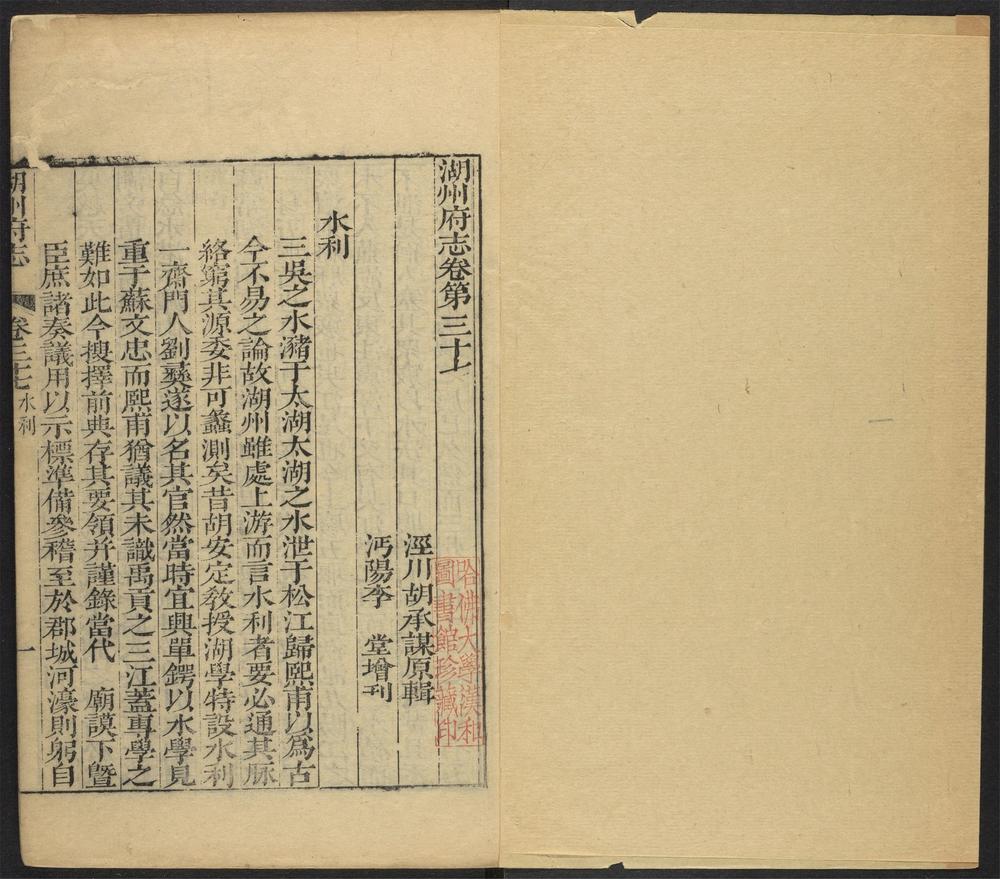 湖州府志卷第三十七
涇川胡承謀原輯
沔陽李　堂增刊
水利
三吳之水瀦于太湖太湖之水泄于松江歸熙甫以爲古
今不易之論故湖州雖處上游而言水利者要必通其脉
絡窮其源委非可蠡測矣昔胡安定教授湖學特設水利
一齋門人劉彝遂以名其官然當時宜興單鍔以水學見
重于蘇文忠而熙甫猶議其未識禹貢之三江蓋專學之
難如此今搜擇前典存其要領并謹錄當代　廟謨下曁
臣庶諸奏議用以示標準備參稽至於郡城河濠則躬自
湖州府志　卷三十七　水利　一
哈佛大學漢和
圖書館珍藏印